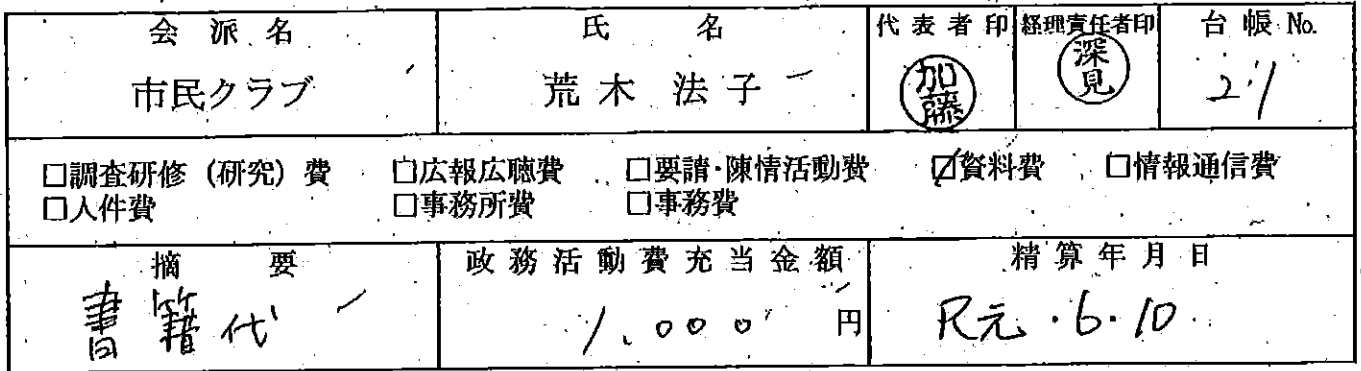 会派名 氏名 代表者印 経理責任者印 台帳No.
市民クラブ 荒木法子 加藤 深見 21
□調査研修（研究）費 □広報広聴費 □要請・陳情活動費 ☑資料費 □情報通信費
□人件費 □事務所費 □事務費
摘要 政務活動費充当金額 精算年月日
書籍代 1,000円 R元・6・10